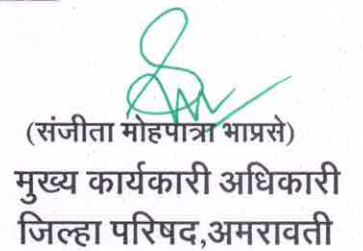 (संजीता मोहपात्रा भाप्रसे)
मुख्य कार्यकारी अधिकारी
जिल्हा परिषद,अमरावती